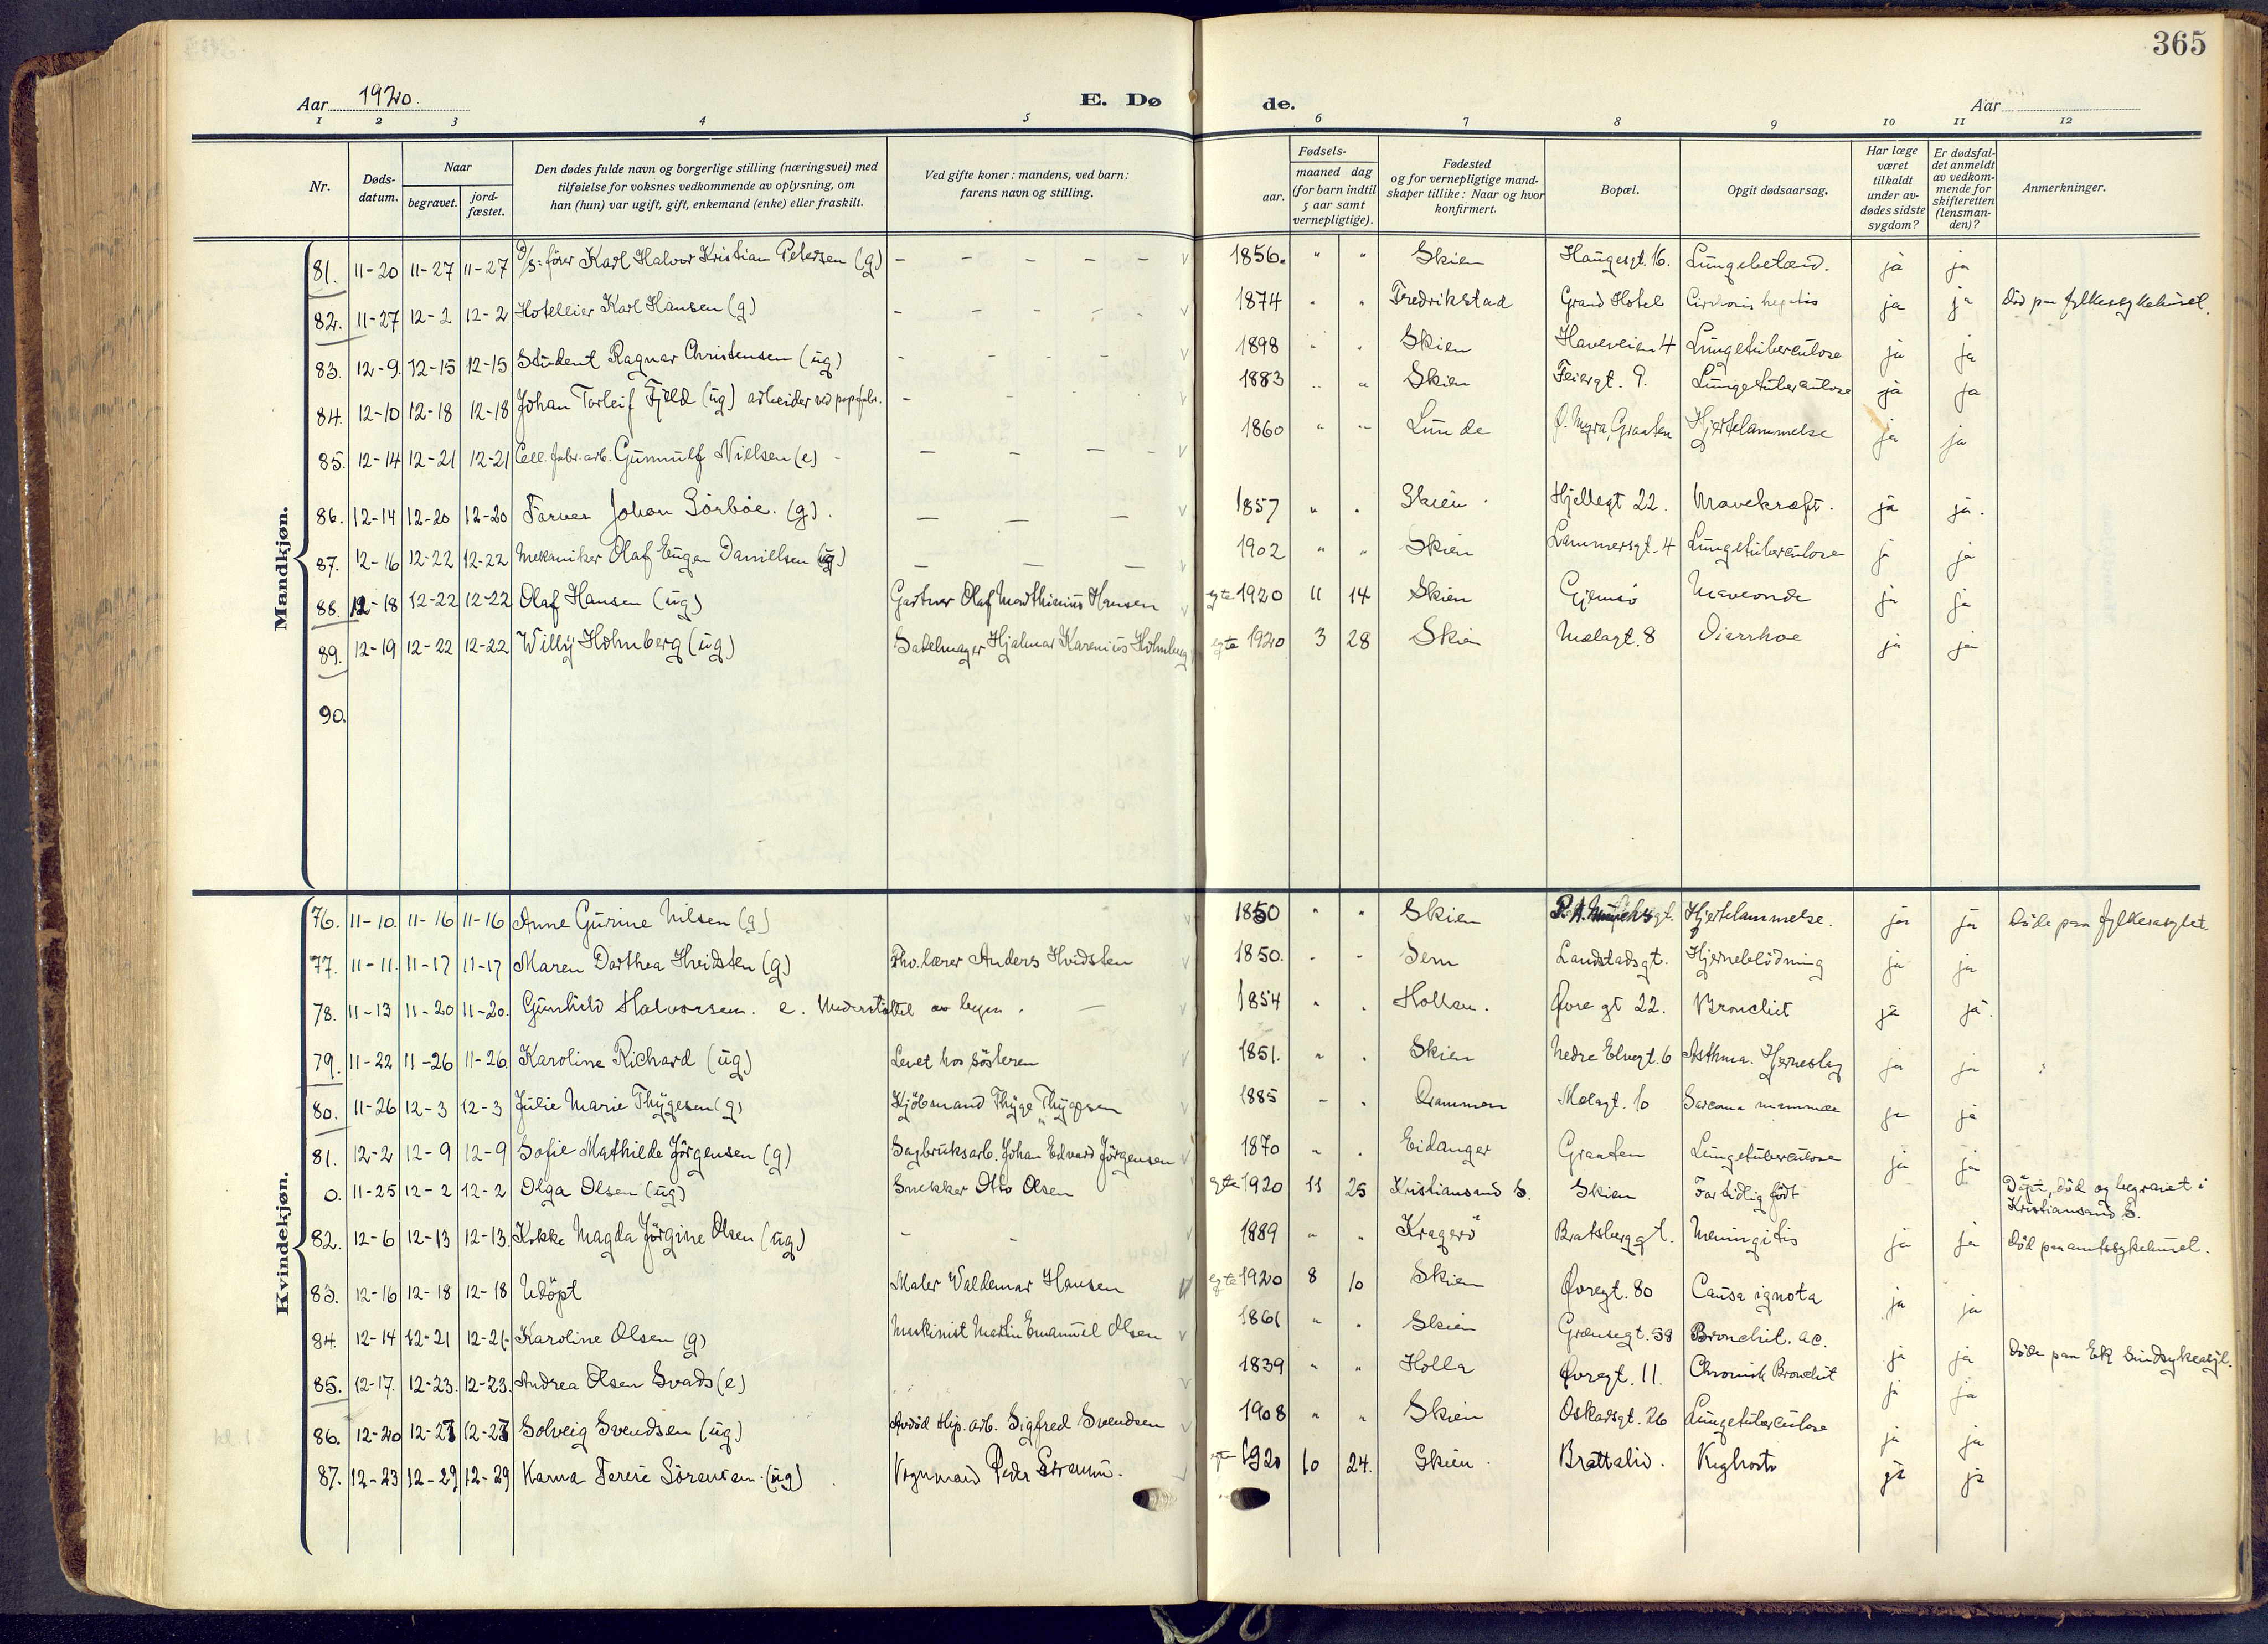 365
Aar 1920. E. Dø de. Aar
1 2 3 4 5 6 7 8 9 10 11 12
Nr. Døds-datum. Naar begravet. jord-fæstet. Den dødes fulde navn og borgerlige stilling (næringsvei) med tilføielse for voksnes vedkommende av oplysning, om han (hun) var ugift, gift, enkemand (enke) eller fraskilt. Ved gifte koner: mandens, ved barn: farens navn og stilling. Fødsels- aar. maaned dag (for barn indtil 5 aar samt vernepligtige). Fødested og for vernepligtige mandskaper tillike: Naar og hvor konfirmert. Bopæl. Opgit dødsaarsag. Har læge været tilkaldt under avdødes sidste sygdom? Er dødsfaldet anmeldt av vedkommende for skifteretten (lensmanden)? Anmerkninger.
Mandkjøn.
81. 11-20 11-27 11-27 D/S-fører Karl Halvor Kristian Petersen (g) – – – – – 1856. " " Skien Haugesgt. 16. Lungebetænd. ja ja
82. 11-27 12-2 12-2 Hotelleier Karl Hansen (g) – – – – – 1874 " " Fredrikstad Grand Hotel Cirrhosis hepatis ja ja Død paa fylkessykehuset.
83. 12-9. 12-15 12-15 Student Ragnar Christensen (ug) – – – – 1898 " " Skien Haveveien 4 Lungetuberculose ja ja
84. 12-10 12-18 12-18 Johan Torleif Fjeld (ug) arbeider ved papfabr. – – – – 1883 " " Skien Feiergt. 9. Lungetuberculose ja ja
85. 12-14 12-21 12-21 Cell. fabr. arb. Gunnulf Nillsen (e) – – – – 1860 " " Lunde Ø. Myra, Graaten Hjertelammelse ja ja
86. 12-14 12-20 12-20 Farver Johan Sörböe. (g). – – – 1857 " " Skien. Hjellegt 22. Mavekræft. ja ja.
87. 12-16 12-22 12-22 Mekaniker Olaf Eugen Daniellsen (ug) – – – 1902 " " Skien Lammersgt. 4 Lungetuberculose ja ja
88. 12-18 12-22 12-22 Olaf Hansen (ug) Gartner Olaf Marthinius Hansen egte 1920 11 14 Skien Gjemsö Maveonde ja ja
89. 12-19 12-22 12-22 Willy Holmberg (ug) Salelmager Hjalmar Karenius Holmberg egte 1920 3 28 Skien Mælagt. 8 Diarrhoe ja ja
90.
Kvindekjøn.
76. 11-10. 11-16 11-16 Anne Gurine Nilsen (g) 1850 " " Skien P. A. Munchsgt. Hjertelammelse. ja ja Døde paa fylkesasylet.
77. 11-11. 11-17 11-17 Maren Dorthea Hvidsten (g) Fhv. lærer Anders Hvidsten 1850. " " Sem Landstadsgt. Hjerneblödning ja ja
78. 11-13 11-20 11-20. Gunhild Halvorsen. e. Understöttet av byen. – 1854 " " Hollen. Øvre gt 22. Bronchit ja ja.
79. 11-22 11-26 11-26. Karoline Richard (ug) Levet hos søsteren 1851. " " Skien Nedre Elvegt. 6 Asthma. Hjerneslag ja ja
80. 11-26 12-3 12-3 Julie Marie Thygesen (g) Kjöbmand Thyge Thygesen 1885 " " Drammen Mælagt. 10 Sarcoma mammae ja ja
81. 12-2 12-9 12-9 Sofie Mathilde Jörgensen (g) Sagbruksarb. Johan Edvard Jörgensen 1870 " " Eidanger Graaten Lungetuberculose ja ja
0. 11-25 12-2 12-2 Olga Olsen (ug) Snekker Otto Olsen egte 1920 11 25 Kristiansand S. Skien For tidlig født Døpt, død og begravet i Kristiansand S.
82. 12-6 12-13 12-13. Kokke Magda Jörgine Olsen (ug) – – 1889 " " Kragerö Bratsberggt. Meningitis ja ja Død paa amtssykehuset.
83. 12-16 12-18 12-18 Udöpt Maler Waldemar Hansen egte 1920 8 10 Skien Øvregt. 80 Causa ignota ja ja
84. 12-14 12-21 12-21. Karoline Olsen (g) Maskinist Martin Emanuel Olsen 1861 " " Skien Grænsegt. 58 Bronchit. ac. ja ja
85. 12-17. 12-23. 12-23. Andrea Olsen Svads (e) 1839 " " Holla Øvregt. 11. Chronisk Bronchit ja ja Døde paa Ek Sindsykeasyl.
86. 12-20 12-27 12-27 Solveig Svendsen (ug) Avdöd Slip. arb. Sigfred Svendsen 1908 " " Skien Oskarsgt. 26 Lungetuberculose ja ja
87. 12-23 12-29 12-29 Karna Terese Sörensen (ug) Vognmand Peder Sörensen. egte 1920 10 24. Skien. Brattalid. Kighoste ja ja